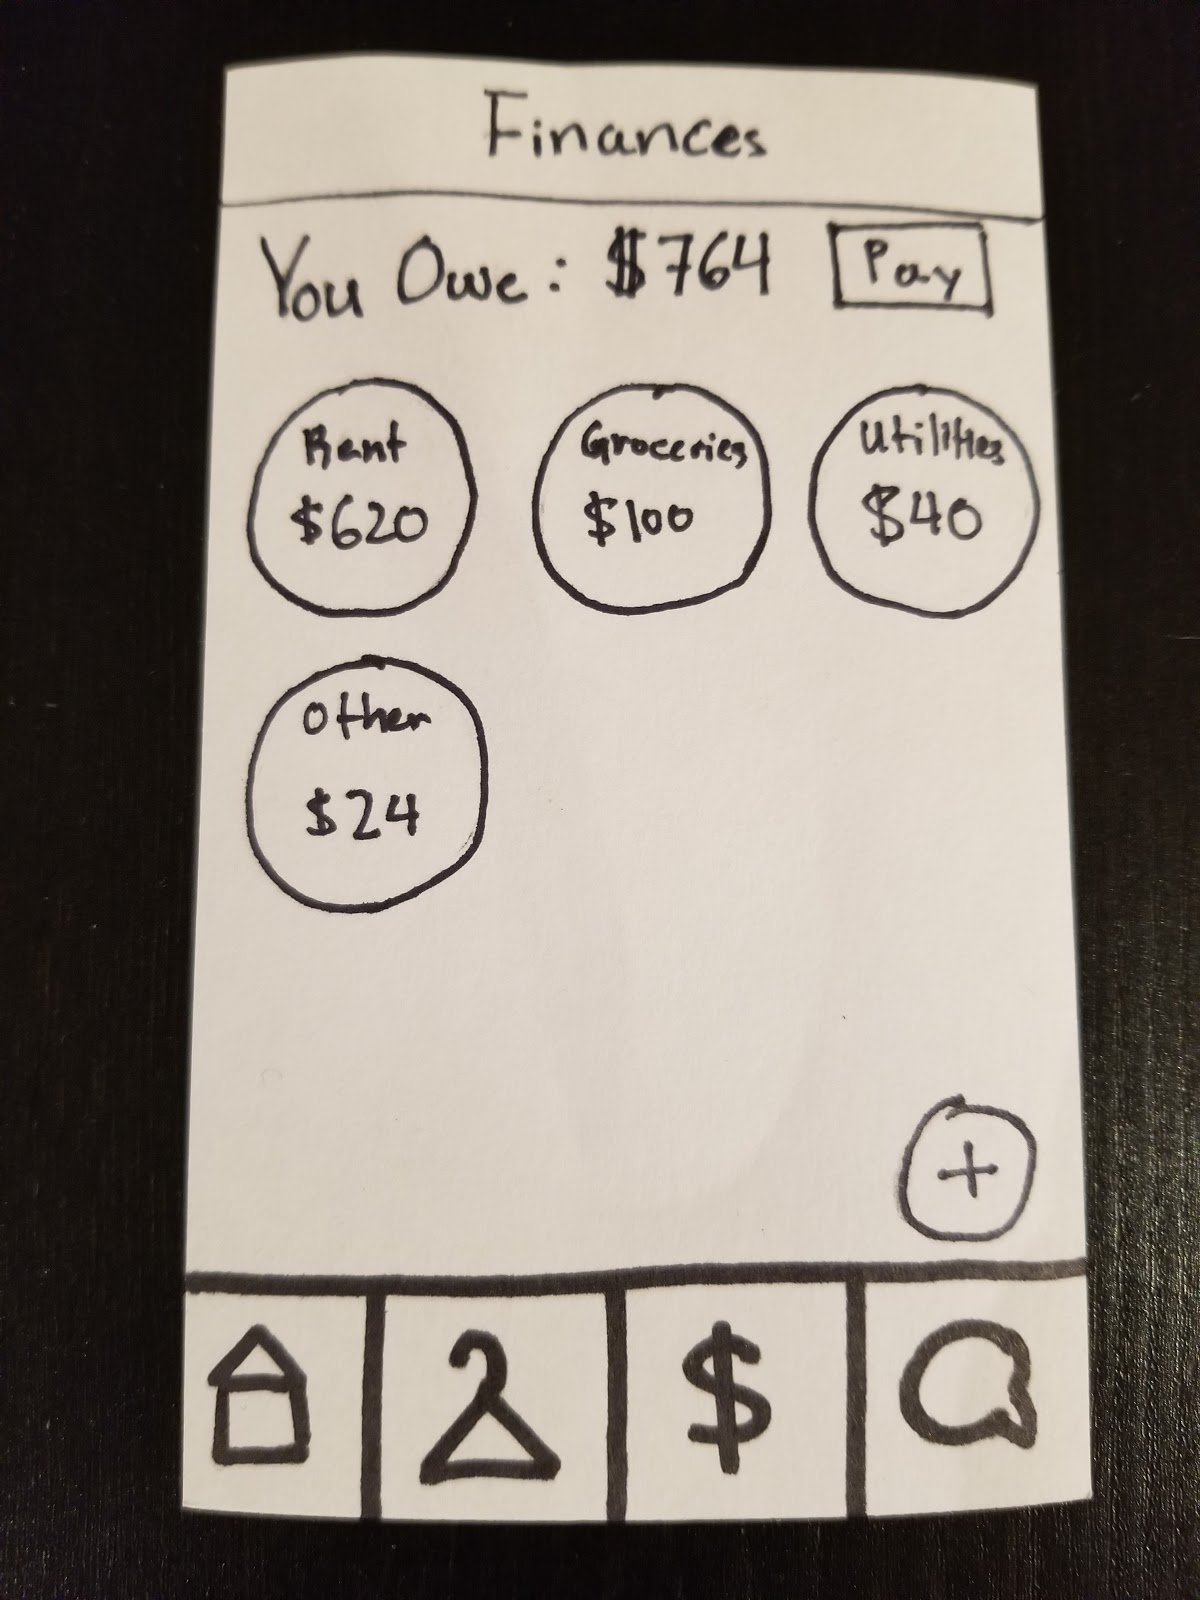 Finances
You Owe: $764 Pay
Rent
$620
Groceries
$100
Utilities
$40
Other
$24
+
$